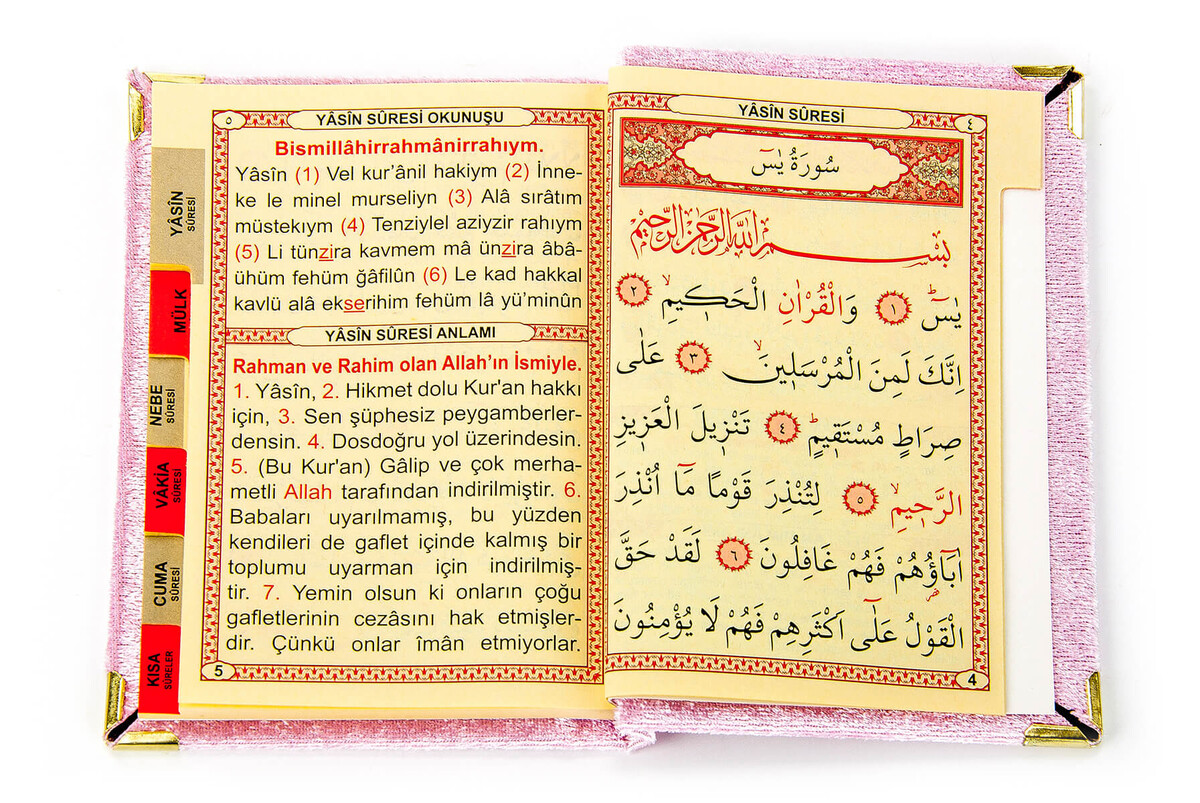 YÂSÎN SÛRESİ
٤
سُورَةُ يٰسٓ
بِسْمِ اللّٰهِ الرَّحْمٰنِ الرَّحٖيمِ
يٰسٓۜ ﴿١﴾ وَالْقُرْاٰنِ الْحَكٖيمِۙ ﴿٢﴾
اِنَّكَ لَمِنَ الْمُرْسَلٖينَۙ ﴿٣﴾ عَلٰى
صِرَاطٍ مُسْتَقٖيمٍۜ ﴿٤﴾ تَنْزٖيلَ الْعَزٖيزِ
الرَّحٖيمِۙ ﴿٥﴾ لِتُنْذِرَ قَوْمًا مَٓا اُنْذِرَ
اٰبَٓاؤُ۬هُمْ فَهُمْ غَافِلُونَ ﴿٦﴾ لَقَدْ حَقَّ
الْقَوْلُ عَلٰٓى اَكْثَرِهِمْ فَهُمْ لَا يُؤْمِنُونَ
4
YÂSÎN SÛRESİ OKUNUŞU
٥
Bismillâhirrahmânirrahıym.
Yâsîn (1) Vel kur’ânil hakiym (2) İnne-
ke le minel murseliyn (3) Alâ sırâtım
müstekıym (4) Tenziylel aziyzir rahıym
(5) Li tünzira kavmem mâ ünzira âbâ-
ühüm fehüm ğâfilûn (6) Le kad hakkal
kavlü alâ ekserihim fehüm lâ yü’minûn
YÂSÎN SÛRESİ ANLAMI
Rahman ve Rahim olan Allah’ın İsmiyle.
1. Yâsîn, 2. Hikmet dolu Kur'an hakkı
için, 3. Sen şüphesiz peygamberler-
densin. 4. Dosdoğru yol üzerindesin.
5. (Bu Kur'an) Gâlip ve çok merha-
metli Allah tarafından indirilmiştir. 6.
Babaları uyarılmamış, bu yüzden
kendileri de gaflet içinde kalmış bir
toplumu uyarman için indirilmiş-
tir. 7. Yemin olsun ki onların çoğu
gafletlerinin cezâsını hak etmişler-
dir. Çünkü onlar îmân etmiyorlar.
5
YÂSÎN
SÛRESİ
MÜLK
NEBE
SÛRESİ
VÂKİA
SÛRESİ
CUMA
SÛRESİ
KISA
SÛRELER